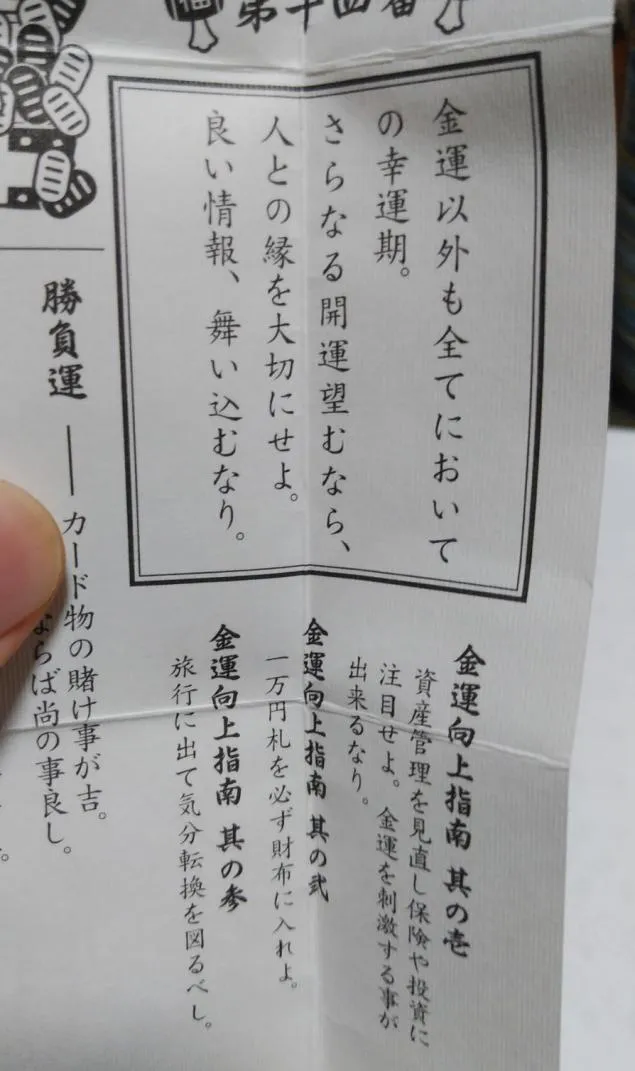 第十四番
金運以外も全てにおいて
の幸運期。
さらなる開運望むなら、
人との縁を大切にせよ。
良い情報、舞い込むなり。
金運向上指南 其の壱
資産管理を見直し保険や投資に
注目せよ。金運を刺激する事が
出来るなり。
金運向上指南 其の弐
一万円札を必ず財布に入れよ。
金運向上指南 其の参
旅行に出て気分転換を図るべし。
勝負運 ── カード物の賭け事が吉。
ならば尚の事良し。